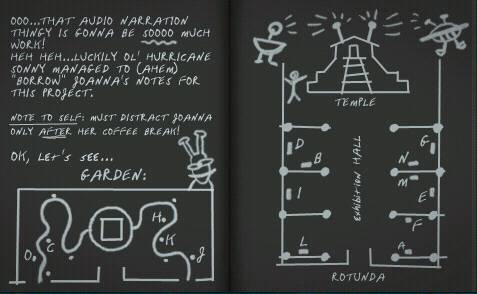 OOO...THAT AUDIO NARRATION
THINGY IS GONNA BE SOOOO MUCH
WORK!
HEH HEH...LUCKILY OL' HURRICANE
SONNY MANAGED TO (AHEM)
"BORROW" JOANNA'S NOTES FOR
THIS PROJECT.
NOTE TO SELF: MUST DISTRACT JOANNA
ONLY AFTER HER COFFEE BREAK!
OK, LET'S SEE...
GARDEN:
H
O
C
K
J
TEMPLE
D
G
B
N
M
EXHIBITION HALL
I
E
F
L
A
ROTUNDA